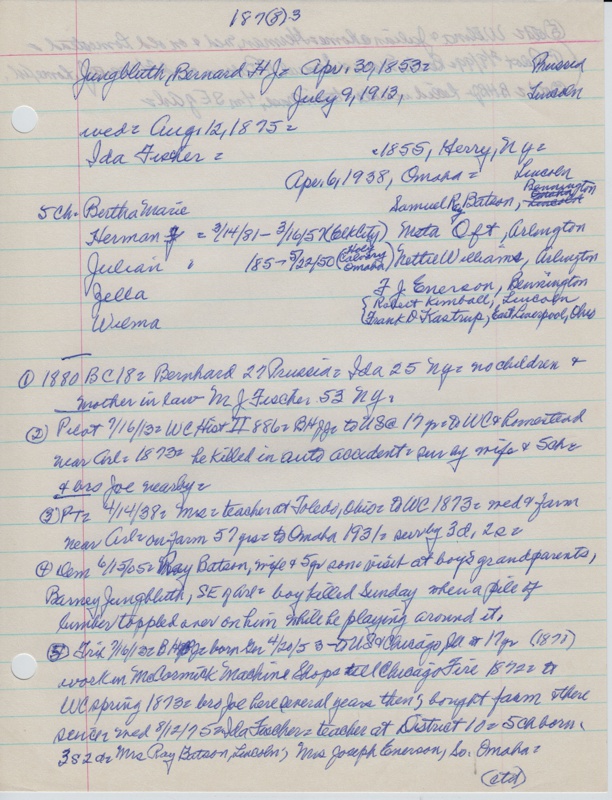 187(8)3
Jungbluth, Bernard H Jr = Apr. 30, 1853 = Prussia
July 9, 1913, Lincoln
wed = Aug. 12, 1875 =
Ida Fischer = 1855, Herry, Ny =
Apr. 6, 1938, Omaha = Lincoln
5 Ch. Bertha Marie Samuel Ray Batson, Bennington Omaha Lincoln
Herman J = 3/14/81 - 3/16/5 (Elk City) Meta Oft, Arlington
Julian 185 - 5/22/50 (Holy Calvary Omaha) Nettie Williams, Arlington
Zella F J Enerson, Bennington
Wilma { Robert Kimball, Lincoln
{ Frank D Kastrup, East Liverpool, Ohio
① 1880 BC 18 = Bernhard 27 Prussia = Ida 25 Ny = no children &
mother in law M J Fischer 53 Ny.
② Pilot 7/16/13 = WC Hist II 886 = BHJr = to USa 17 yr = to WC & homestead
near Arl = 1873 = he killed in auto accident = surv by wife & 5ch =
& bro Joe nearby =
③ PT = 4/14/38 = Mrs = teacher at Toledo, Ohio = to WC 1873 = wed & farm
near Arl = on farm 57 yrs = to Omaha 1931 = surv by 3d, 2s =
④ Dem 6/15/05 = Ray Batson, wife & 5yr son visit at boy's grandparents,
Barney Jungbluth, SE of Arl = boy killed Sunday when a pile of
lumber toppled over on him while he playing around it.
⑤ Trib 7/16/13 = BHJr = born Ger 4/20/53 - to US & Chicago Ill at 17 yr (1871)
work in McCormick Machine Shops till Chicago Fire 1872 = to
WC spring 1873 = bro Joe here several years then; bought farm & there
since = wed 8/12/75 = Ida Fischer = teacher at District 10 = 5ch born.
3s 2d = Mrs Ray Batson, Lincoln; Mrs Joseph Enerson, So. Omaha =
(ctd)